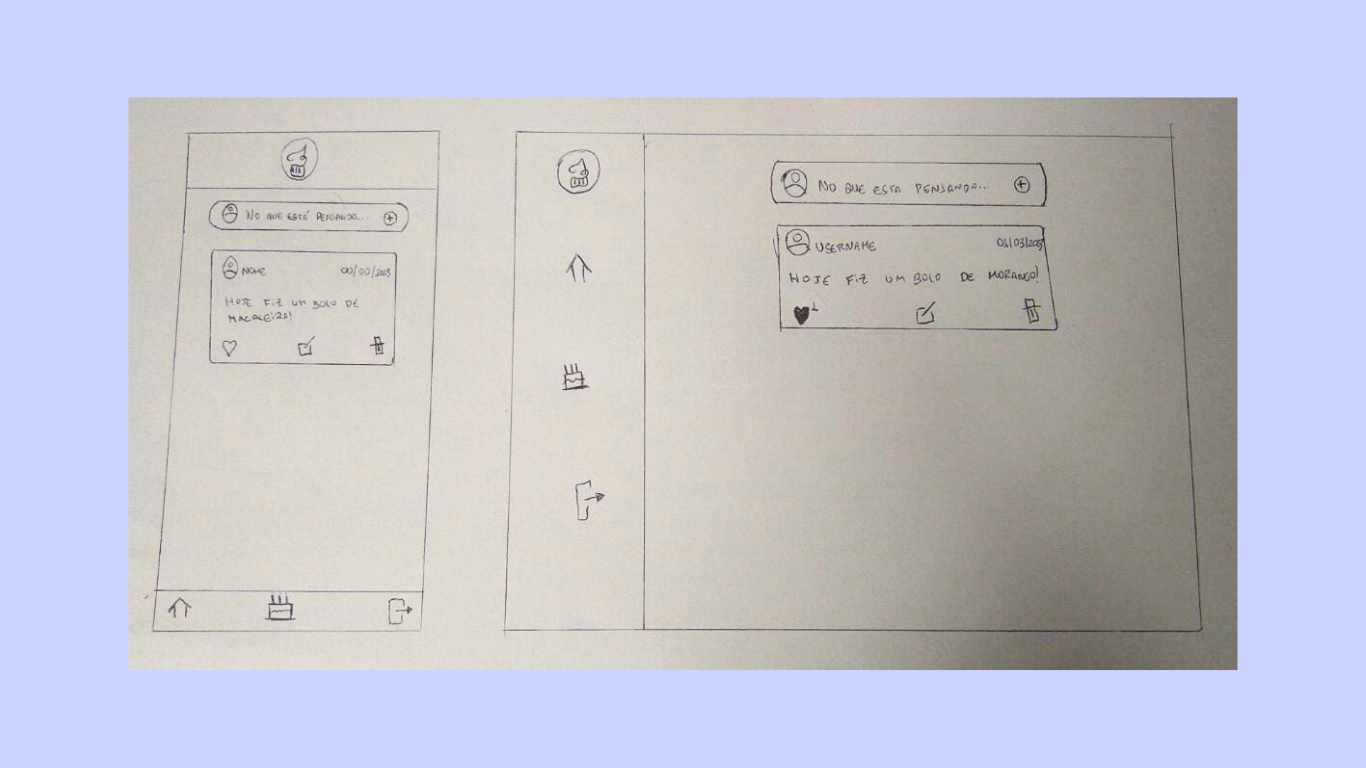 NO QUE ESTÁ PENSANDO...
NOME 00/00/2023
HOJE FIZ UM BOLO DE
MACAXEIRA!
NO QUE ESTA PENSANDO...
USERNAME 01/03/2023
HOJE FIZ UM BOLO DE MORANGO!
1